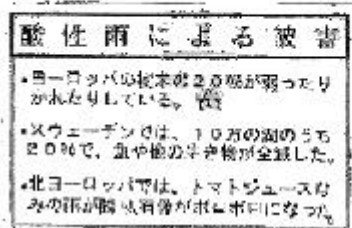 酸性雨による被害
・ヨーロッパの樹木の20%が弱ったり
かれたりしている。
・スウェーデンでは、10万の湖のうち
20%で、魚や他の生き物が全滅した。
・北ヨーロッパでは、トマトジュースな
みの雨が降り石像がボロボロになった。